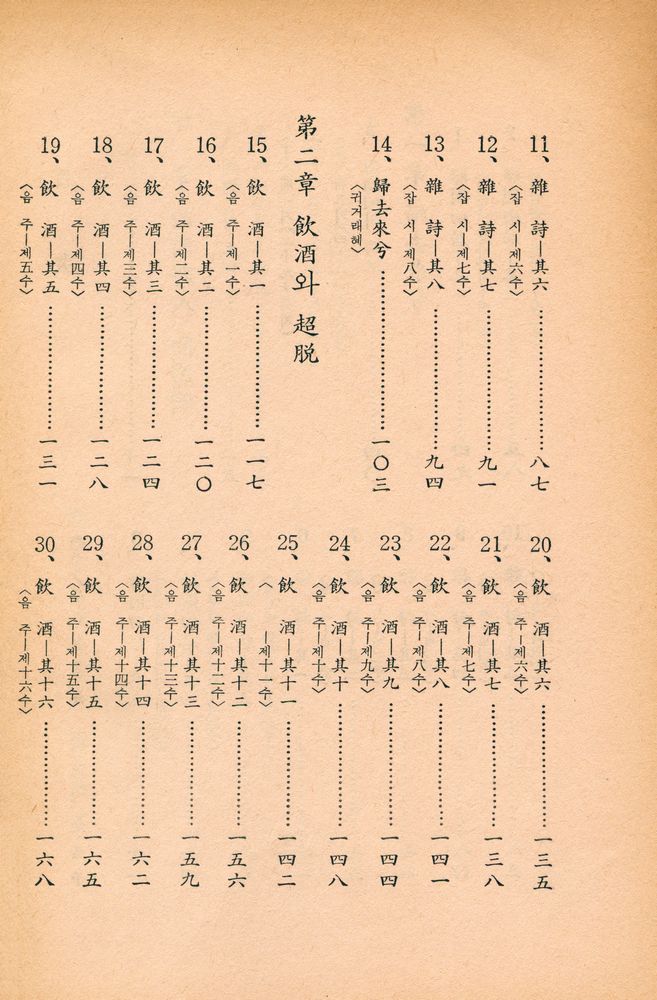 11、雜 詩—其六……………八七
〈잡 시—제六수〉
12、雜 詩—其七……………九一
〈잡 시—제七수〉
13、雜 詩—其八……………九四
〈잡 시—제八수〉
14、歸去來兮……………一〇三
〈귀거래혜〉
第二章 飮酒와 超脱
15、飮 酒—其一……………一一七
〈음 주—제一수〉
16、飮 酒—其二……………一二〇
〈음 주—제二수〉
17、飮 酒—其三……………一二四
〈음 주—제三수〉
18、飮 酒—其四……………一二八
〈음 주—제四수〉
19、飮 酒—其五……………一三一
〈음 주—제五수〉
20、飮 酒—其六……………一三五
〈음 주—제六수〉
21、飮 酒—其七……………一三八
〈음 주—제七수〉
22、飮 酒—其八……………一四一
〈음 주—제八수〉
23、飮 酒—其九……………一四四
〈음 주—제九수〉
24、飮 酒—其十……………一四八
〈음 주—제十수〉
25、飮 酒—其十一……………一四二
〈 —제十一수〉
26、飮 酒—其十二……………一五六
〈음 주—제十二수〉
27、飮 酒—其十三……………一五九
〈음 주—제十三수〉
28、飮 酒—其十四……………一六二
〈음 주—제十四수〉
29、飮 酒—其十五……………一六五
〈음 주—제十五수〉
30、飮 酒—其十六……………一六八
〈음 주—제十六수〉